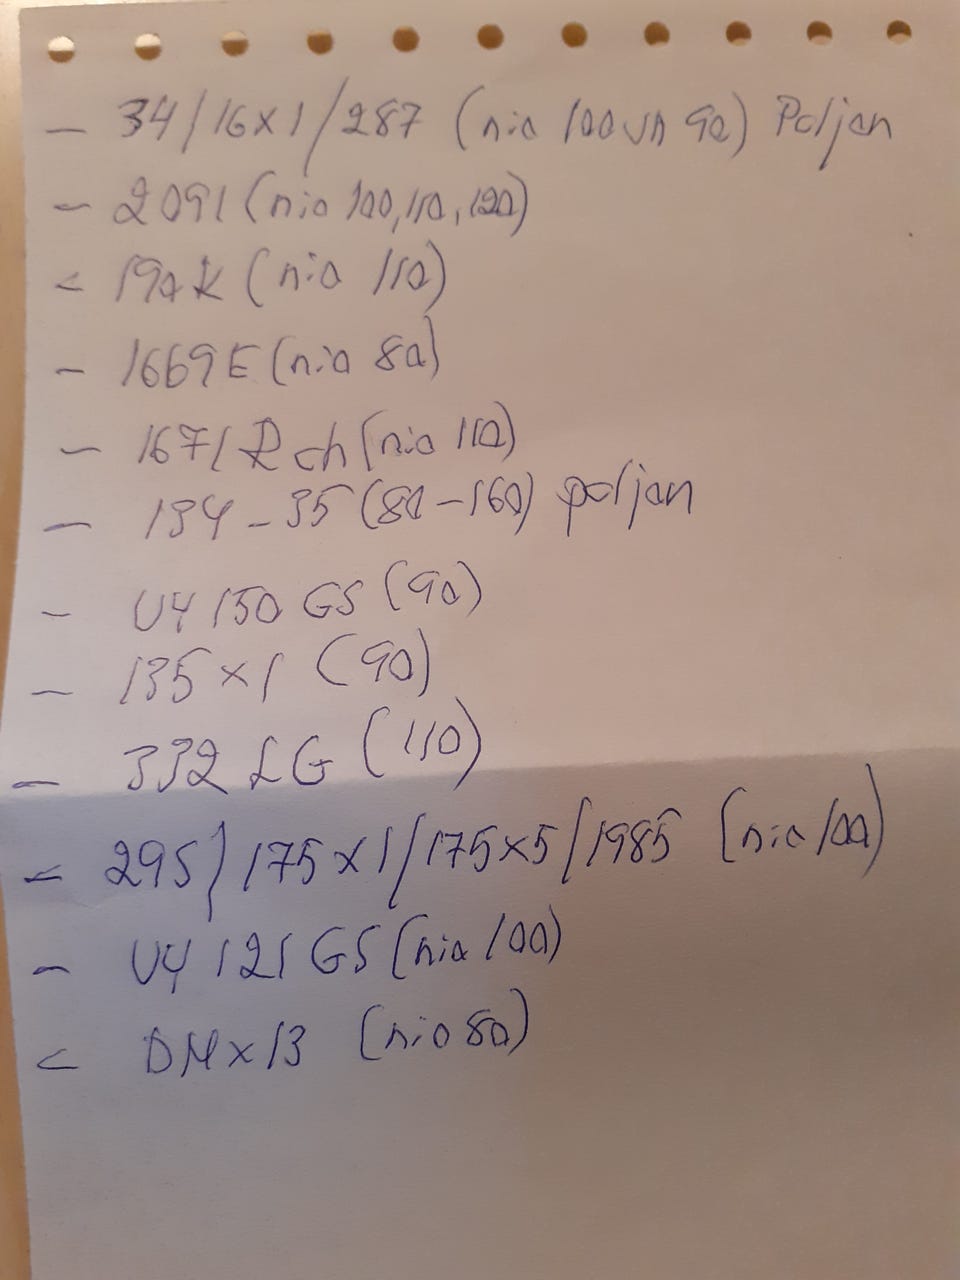 - 34/16x1/287 (nia 100 va 90) Poljan
- 2091 (nia 100, 110, 120)
- 190K (nia 110)
- 1669E (nia 80)
- 1671 Rch (nia 110)
- 134-35 (80-160) poljan
- U4 150 GS (90)
- 135x1 (90)
- 332 LG (110)
- 295/175x1/175x5/1985 (nia 100)
- U4 121 GS (nia 100)
- DMx13 (nia 80)